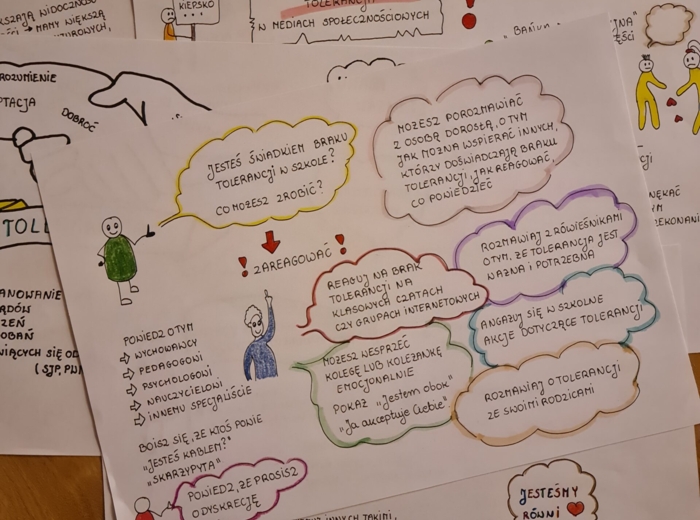 KIEPSKO
TOLERANCJI
W MEDIACH SPOŁECZNOŚCIOWYCH
ROZUMIENIE
DOBROĆ
JESTEŚ ŚWIADKIEM BRAKU
TOLERANCJI W SZKOLE?
CO MOŻESZ ZROBIĆ?
MOŻESZ POROZMAWIAĆ
Z OSOBĄ DOROSŁĄ, O TYM
JAK MOŻNA WSPIERAĆ INNYCH,
KTÓRZY DOŚWIADCZAJĄ BRAKU
TOLERANCJI, JAK REAGOWAĆ,
CO POWIEDZIEĆ
! ZAREAGOWAĆ !
REAGUJ NA BRAK
TOLERANCJI NA
KLASOWYCH CZATACH
CZY GRUPACH INTERNETOWYCH
ROZMAWIAJ Z RÓWIEŚNIKAMI
O TYM, ŻE TOLERANCJA JEST
WAŻNA I POTRZEBNA
ANGAŻUJ SIĘ W SZKOLNE
AKCJE DOTYCZĄCE TOLERANCJI
MOŻESZ WESPRZEĆ
KOLEGĘ LUB KOLEŻANKĘ
EMOCJONALNIE
POKAŻ „Jestem obok"
„Ja akceptuję Ciebie"
ROZMAWIAJ O TOLERANCJI
ZE SWOIMI RODZICAMI
POWIEDZ O TYM
⇨ WYCHOWAWCY
⇨ PEDAGOGOWI
⇨ PSYCHOLOGOWI
⇨ NAUCZYCIELOWI
⇨ INNEMU SPECJALIŚCIE
BOISZ SIĘ, ŻE KTOŚ POWIE
"JESTEŚ KABLEM?"
"SKARŻYPYTA"
POWIEDZ, ŻE PROSISZ
O DYSKRECJĘ
JESTEŚMY
RÓWNI